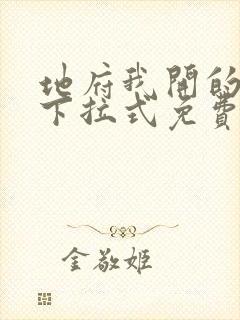 地府我開的
下拉式免費
金敬姬